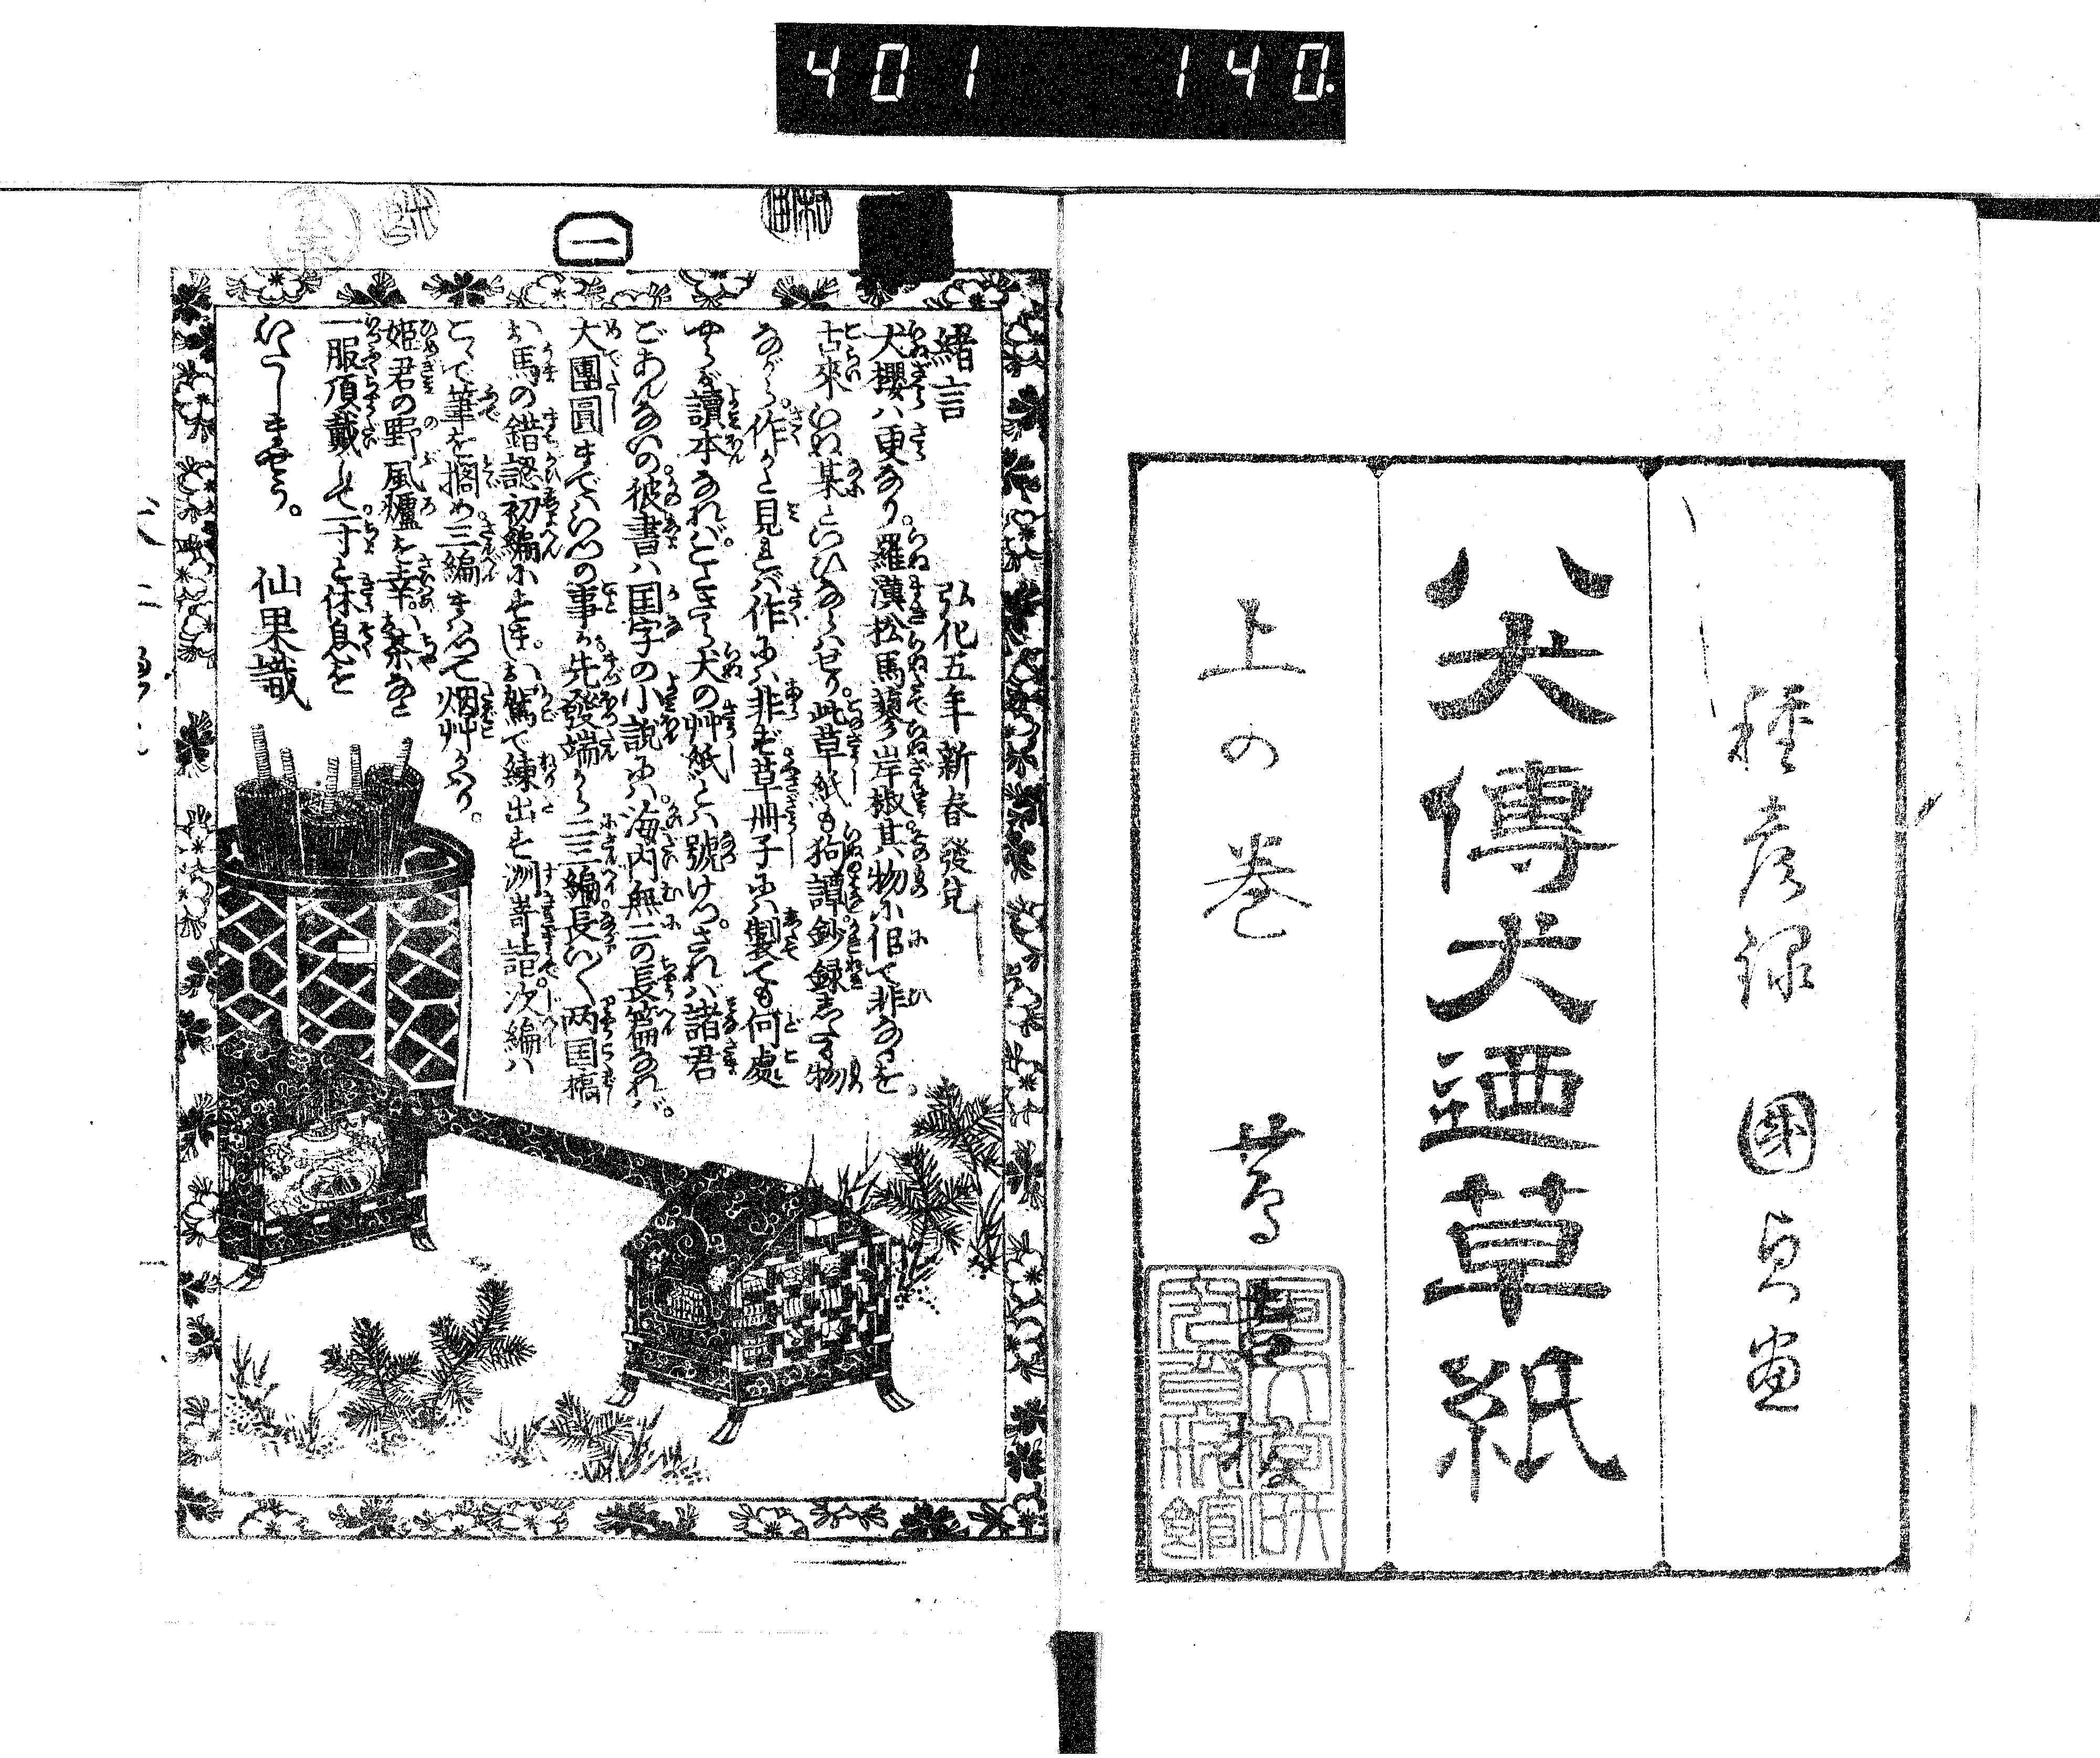 401 140.
種彦録 國貞畫
八犬傳犬廼草紙
上の巻 蔦吉板
一
緒言 弘化五年新春發兌
犬櫻ハ更なり。羅漢松馬蓼岸椒其物に佀て非なるを
古來いぬ某といひならハせり。此草紙も狗譚鈔録したる物
ながら。作かと見れバ作にハ非ず草冊子にハ製ても何處
やらが讀本なれバ。ことさら犬の艸紙とハ號けつ。されバ諸君
ごあんないの彼書ハ国字の小説にハ海内無二の長篇なれバ。
大團圓までハいつの事か。先發端から二三編長いハ両国橋
馬の錯認初編に
で練出す洲嵜詣次編ハ
とらで筆を擱め三編まハして烟艸かハり。
姫君の野風爐を幸ハ茶なと
一服頂戴して一寸と休息を
いたしませう。 仙果識